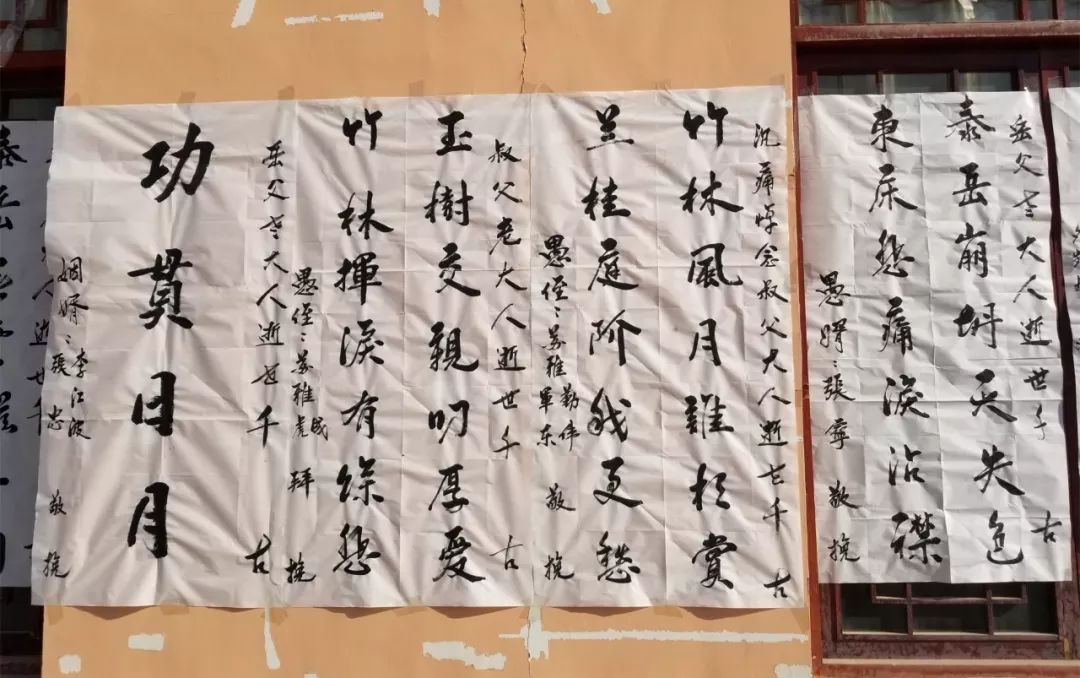 岳父老大人逝世千古
泰岳崩坍天失色
東床悲痛淚沾襟
愚婿：張寧 敬挽
沉痛悼念叔父大人逝世千古
竹林風月誰相賞
兰桂庭阶我更愁
愚侄：苏雅勤伟軍东 敬挽
叔父老大人逝世千古
玉樹交親叨厚愛
竹林揮淚有餘悲
愚侄：苏雅成虎 拜挽
岳父老大人逝世千古
功貫日月
姻婿：李江波
張忠 敬挽